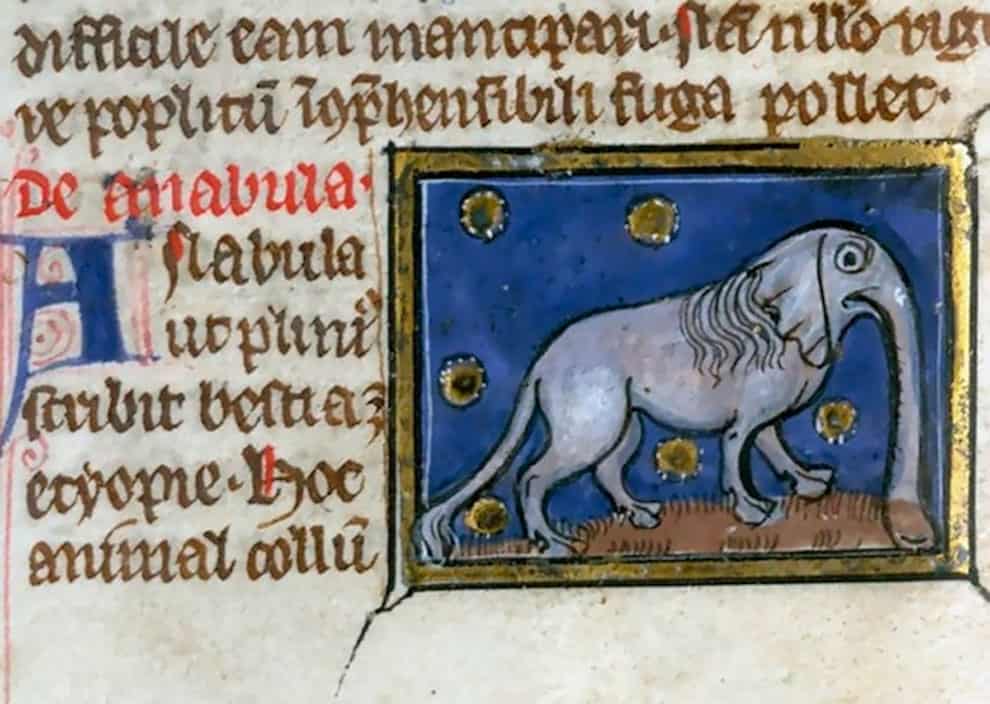 difficile eam mancipari. stā nllō vigo
re poplitū īꝯp̄hensibili fuga pollet.
De anabula.
Aslabula
ut plini⁹
scribit bestia ꝫ
etyopie. Hoc
animal collū